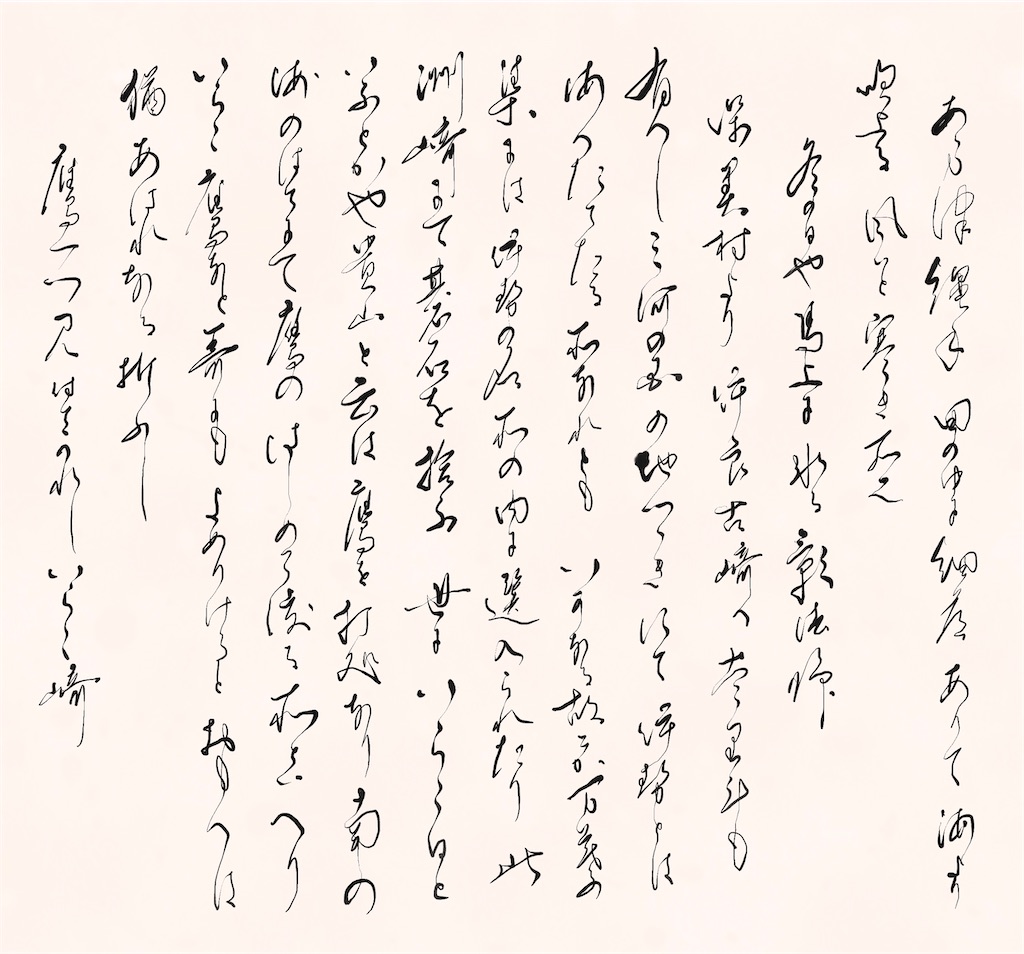 あまつ縄手田の中に細道ありて海より
吹上る風いと寒き所也
冬の日や馬上に氷る影法師
保美村より伊良古崎へ壱里斗も
有へし三河の国の地つゝきにて伊勢とは
海へたてたる所なれともいかなる故にか万葉の
集には伊勢の名所の内に選入られたり此
洲崎にて碁石を拾ふ世にいらこ白と
いふとかや骨山と云は鷹を打処なり南の
海のはてにて鷹のはしめて渡る所といへり
いらこ鷹なと哥にもよめりけりとおもへは
猶あはれなる折ふし
鷹一つ見付てうれしいらこ崎